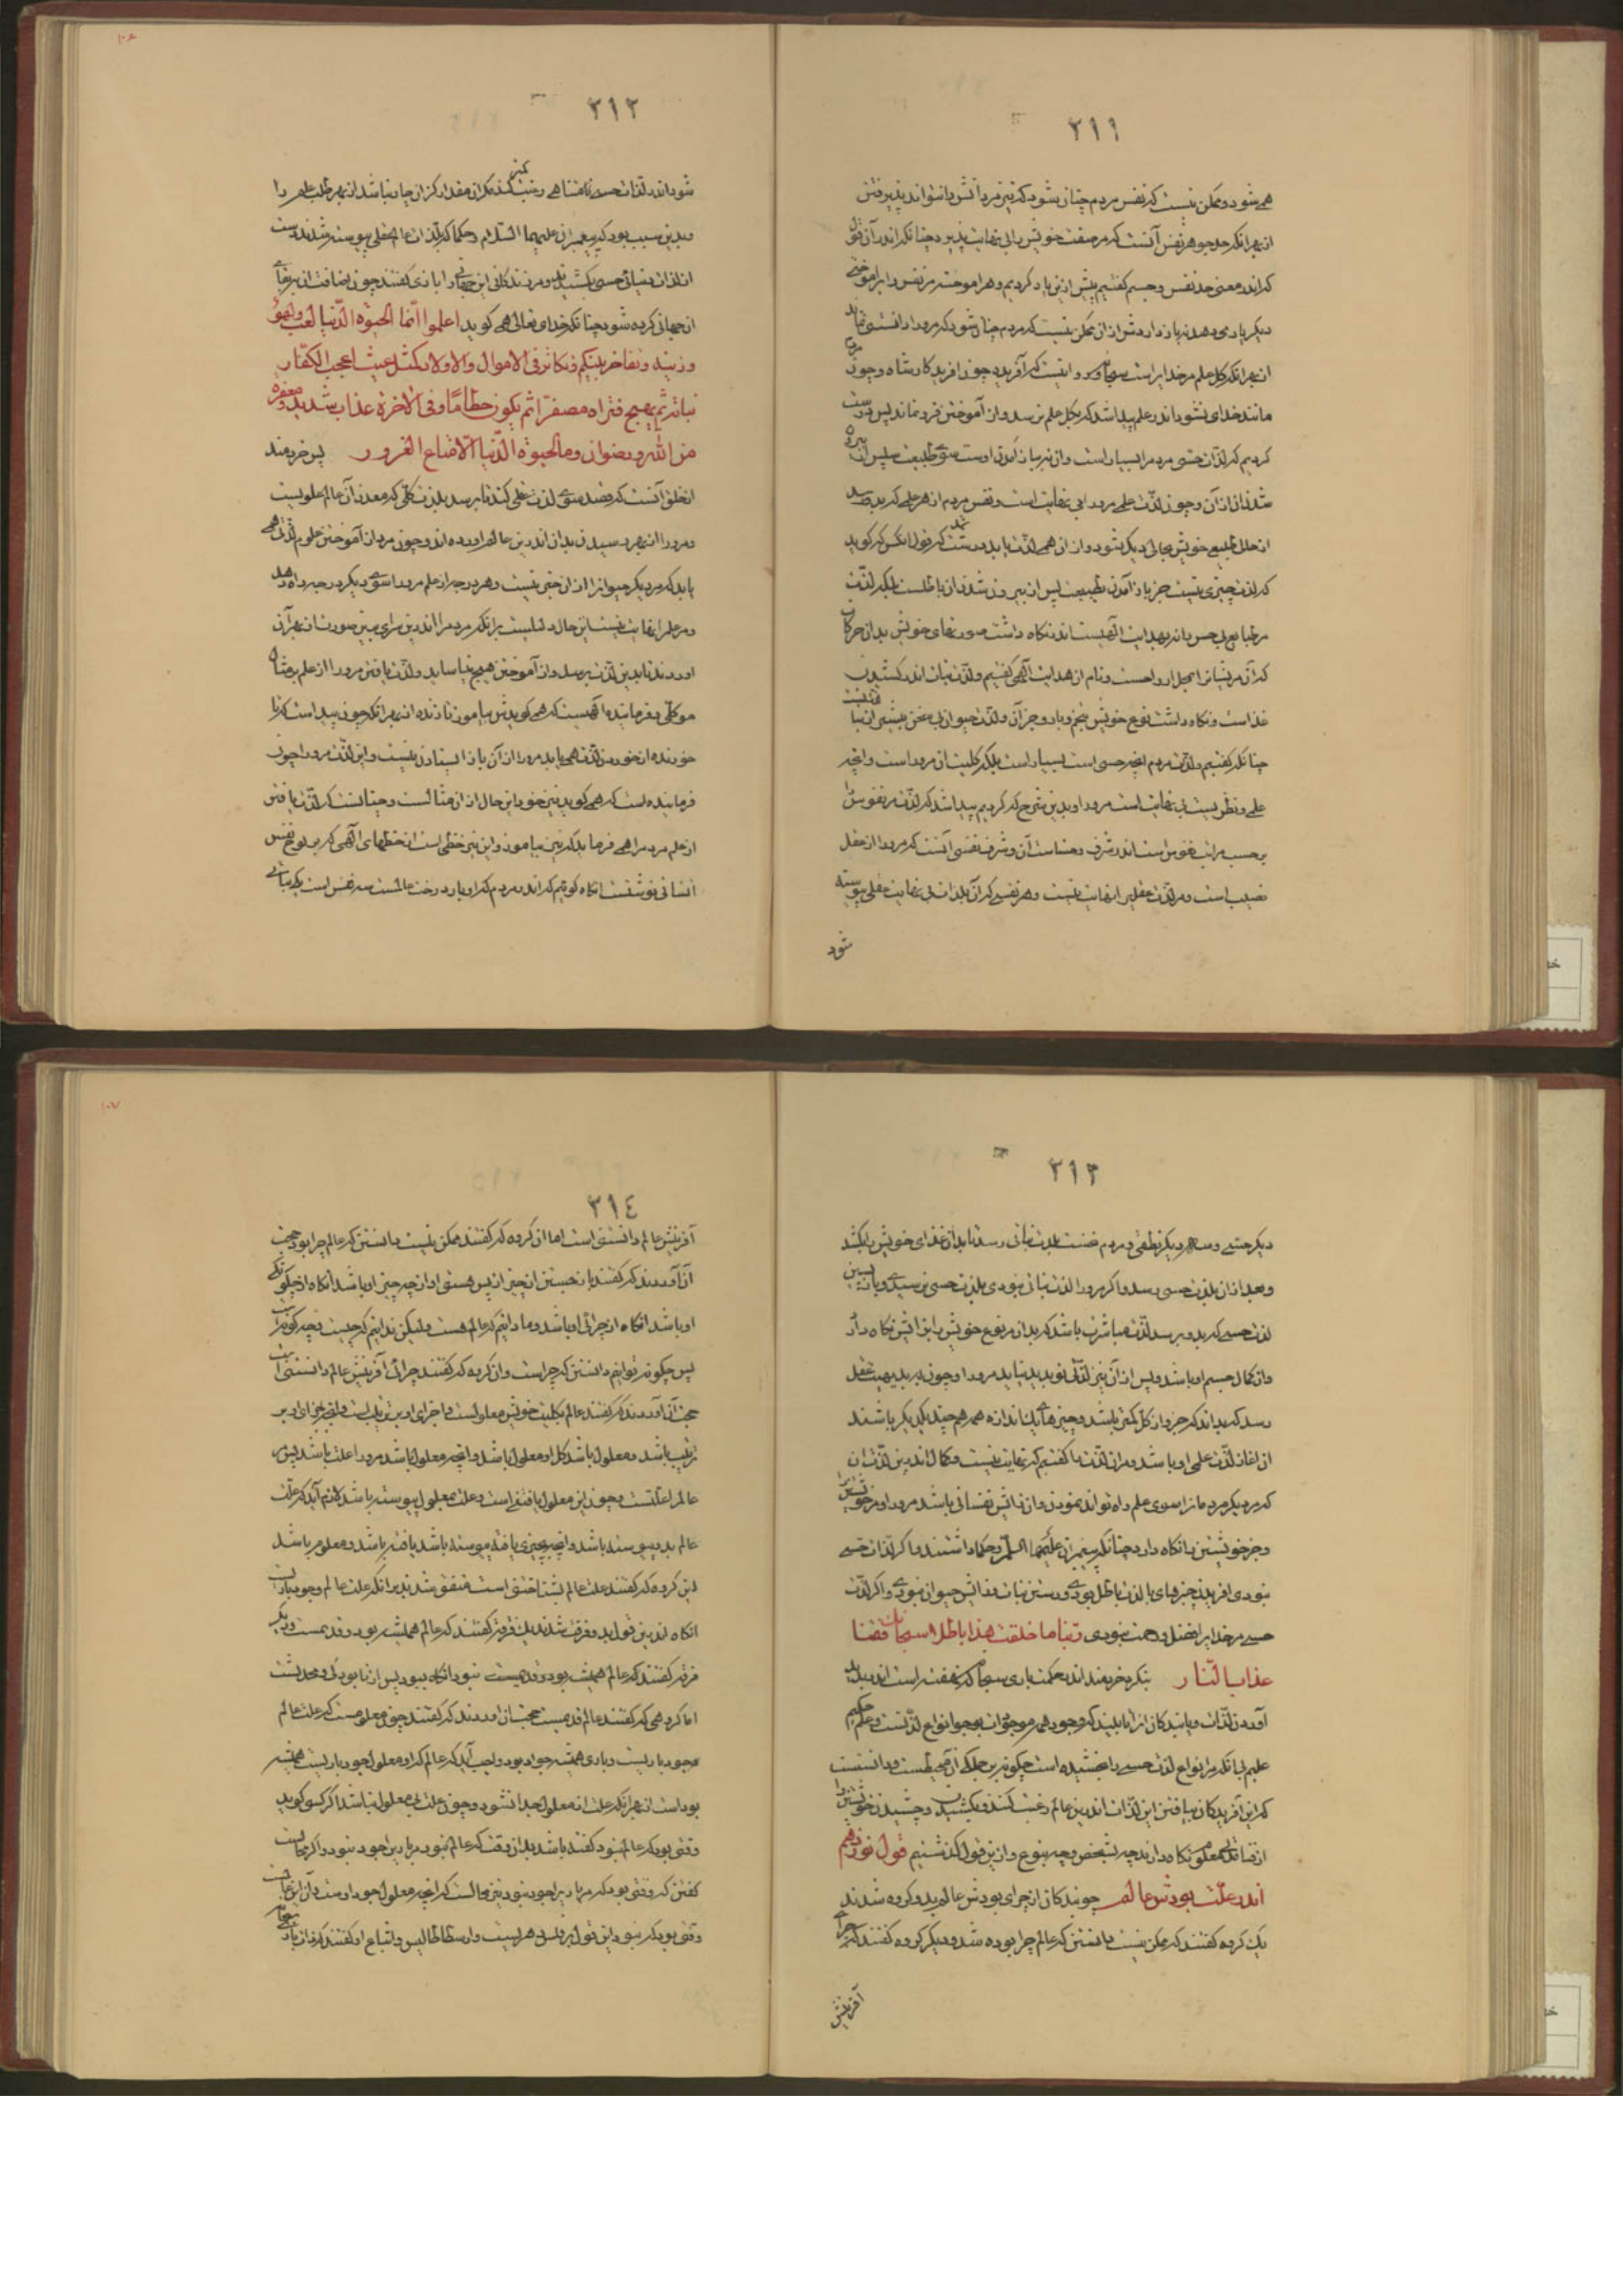 ۲۱۱
همی شود و ممکن نیست که نفس مردم چنان شود که نیز مر دانش را نتواند پذیرفتن
از بهر آنکه حد جوهر نفس آنست که مر صفت خویش را بی نهایت پذیرد چنانکه اندر آن قول
که اندر معنی حد نفس و جسم گفتیم پیش ازین یاد کردیم و هر آموخته مر نفس را بر آموختن
دیگر یاری دهد نه باز داردش از آن ممکن نیست که مردم چنان شود که مرو را دانستنی نماند
از بهر آنکه کل علم مر خدایراست سبحانه و روا نیست که آفریده چون آفریدگار شود و چون مردم
مانند خدای نشود اندر علم پیدا شد که بکل علم نرسد و از آموختن فرو نماند پس درست
کردیم که لذات حسی مردم را بسیار است و از نه باز آمدن اوست سوی طبیعت سپس از بیرون
شدنش از آن و چون لذت علمی مرورا بی نهایت است و نفس مردم از هر علمی که بدو رسد
از حال طبیعی خویش بحالی دیگر شود و از آن همی لذت یابد درست شد که قول آنکس که گوید
که لذت چیزی نیست جز باز آمدن بطبیعت پس از بیرون شدن از آن باطلست بلکه لذت
مر طبایع بی حس را نه بهدایت الهیست اندر نگاه داشت صورتهای خویش بدان حرکات
که آن مریشانرا بمحل ارواحست و نام از هدایت الهی گفتیم و لذت نبات اندر کشیدن
غذاست و نگاه داشت نوع خویش بتخم و بار و جز آن و لذت حیوان بی سخن بیشتر از نبا تست
چنانکه گفتیم و لذت مردم آنچه حسی است بسیار است بلکه کلیت آن مروراست و آنچه
علمی و نظریست بی نهایت است مرورا و بدین شرح که کردیم پیدا شد که لذت مر نفوس را
بر حسب مراتب نفوس است اندر شرف و خساست آن و شرف نفسی آنست که مرورا از عقل
نصیب است و مر لذت عقلی را نهایت نیست و هر نفسی که آن بلذات بی نهایت عقلی پیوسته
شود
۲۱۲
شود اندر لذات حسی متناهی رغبت نکند مگر آن مقدار کز آن چاره نباشد از بهر طلب علم را
و بدین سبب بود که پیغمبران علیهم السلام و حکما که بلذات عالم عقلی پیوسته شدند دست
از لذات دنیائی حسی بکشیدند و مر زندگانی این جهانی را بازی گفتند چون اضافت آن بر بقای
آن جهانی کرده شود چنانکه خدای تعالی همی گوید اعلموا انما الحیوة الدنیا لعب و لهو
و زینة و تفاخر بینکم و تکاثر فی الاموال والاولاد کمثل غیث اعجب الکفار
نباته ثم یهیج فتراه مصفرا ثم یکون حطاما و فی الاخرة عذاب شدید و مغفرة
من الله و رضوان و ما الحیوة الدنیا الا متاع الغرور پس خردمند
از خلق آنست که قصد سوی لذت علمی کند تا برسد بلذت کلی که معدن آن عالم علویست
و مرورا از بهر رسیدن بدان اندرین عالم آورده اند و چون مردم از آموختن علوم لذتی همی
یابد که مر دیگر حیوانرا از آن خبر نیست و هر درجه از علم مرورا سوی دیگر درجه راه دهد
و مر علم را نهایت نیست این حال دلیلست بر آنکه مردم را اندرین سرای بدین صورت از بهر آن
آوردند تا بدین لذت برسد و از آموختن هیچ نیاساید و لذت یافتن مرورا از علم بر مثال
موکلی و فرمانیده الهیست که همی گویدش بیاموز تا زنده از بهر آنکه چون پیداست که تا
خورنده از خوردن لذت همی یابد مرورا از آن باز ایستادن نیست و این لذت مرورا چون
فرماینده است که همی گوید نیز خور این حال از آن مثالست و چنانست که لذت یافتن
از علم مردم را همی فرماید که نیز بیاموز و این نیز خطی است از خطهای الهی که بر لوح نفس
انسانی نوشتست آنگاه گوئیم که اندر مردم که او بار درخت عالمست سه نفس است یکی نباتی
۲۱۳
دیگر حسی و سه دیگر نطقی و مردم نخست بلذت نباتی رسد تا بدان غذای خویش را بکشد
و بعد از آن بلذت حسی رسد و اگر مرورا لذت نباتی نبودی بلذت حسی نرسیدی و باز پسین
لذت حسی که بدو برسد لذت مباشرت باشد که بدان مر نوع خویش را بزایش نگاه دارد
و آن کمال جسم او باشد و پس از آن نیز لذتی نو پدید نیاید مرورا و چون به بدیهت عقل
رسد که بداند که جزو از کل کمتر باشد و چیزهای یک اندازه همه همچند یکدیگر باشند
آن آغاز لذت علمی او باشد و مر آن لذت را گفتیم که نهایت نیست و کمال اندرین لذت آن
که مر دیگر مردمانرا سوی علم راه تواند نمودن و آن زایش نفسانی باشد مرورا و مر خویشتن را
و جز خویشتن را نگاه دارد چنانکه پیغمبران علیهم السلم و حکما داشتند و اگر لذات حسی
نبودی آفریدن چیزهای با لذت باطل بودی و رستن نبات و زایش حیوان نبودی و اگر لذت
حسی مر خدایرا فضل و رحمت نبودی ربنا ما خلقت هذا باطلا سبحانک فقنا
عذاب النار بنگر بخردمند اندر حکمت باری سبحانه که نهفته است اندر پدید
آوردن لذات و یابندگان آنرا تا ببیند که وجود همه موجودات بوجود انواع لذتست و حکیم
علیم بی آنکه مر انواع لذت حسی را بخشیده است چگونه برین جملگی آن محیطست و دانستست
که این آفریدگان بیافتن این لذات اندرین عالم رغبت کنند و بکشیدن و چشیدن خویشتن را
از فنا تا بوقت معلوم نگاه دارند چه بشخص و چه بنوع و ازین قول گذشتیم قول نوزدهم
اندر علت بودش عالم جویندگان از چرای بودش عالم بدو گروه شدند
یک گروه گفتند که ممکن نیست دانستن که عالم چرا بوده شد و دیگر گروه گفتند که چرای
آفرینش
۲۱٤
آفرینش عالم دانستنی است اما آن گروه که گفتند ممکن نیست دانستن که عالم چرا بود حجت
آن آوردند که گفتند باز جستن از چیز از پس هستی او از چه چیزی او باشد آنگاه از چگونگی
او باشد آنگاه از چرائی او باشد و ما دانیم که عالم هست و لیکن ندانیم که چیست و چه گونه است
پس چگونه توانیم دانستن که چراست و آن گروه که گفتند چرائی آفرینش عالم دانستنی است
حجت آن آوردند که گفتند عالم بکلیت خویش معلولست و اجزای او بترتیب است و آنچه اجزای او بر
ترتیب باشد و معلول باشد کل او معلول باشد و آنچه معلول باشد مرورا علت باشد پس مر
عالم را علتست و چون این معلول یافتنی است و علت بمعلول پیوسته باشد لازم آید که علت
عالم بدو پیوسته باشد و آنچه بچیزی یافته پیوسته باشد یافته باشد و معلوم باشد
این گروه که گفتند علت عالم بشناختنی است متفق شدند بر آنکه علت عالم وجود باریست
آنگاه اندرین قول بدو فرقت شدند یک فرقه گفتند که عالم همیشه بود و قدیمست و دیگر
فرقه گفتند که عالم همیشه نبود و قدیم نیست نبود آنگاه ببود پس از نابودگی و محدثست
اما گروهی که گفتند عالم قدیمست حجت آن آوردند که گفتند چون معلومست که علت عالم
جود باریست و باری همیشه جواد بود واجب آید که عالم کز او معلول جود باریست همیشه
بوداست از بهر آنکه علت از معلول جدا نشود و چون علت بی معلول نباشد اگر کسی گوید
وقتی بود که عالم نبود گفته باشد بدان وقت که عالم نبود مر باریرا جود نبود و اگر محالست
گفتن که وقتی بود که مر باریرا جود نبود نیز محالست که آنچه معلول جود اوست و آن این عالمست
وقتی بود که نبود این قول ابرقلس دهریست و ارسطاطالیس و اتباع او گفتند که ذات باری